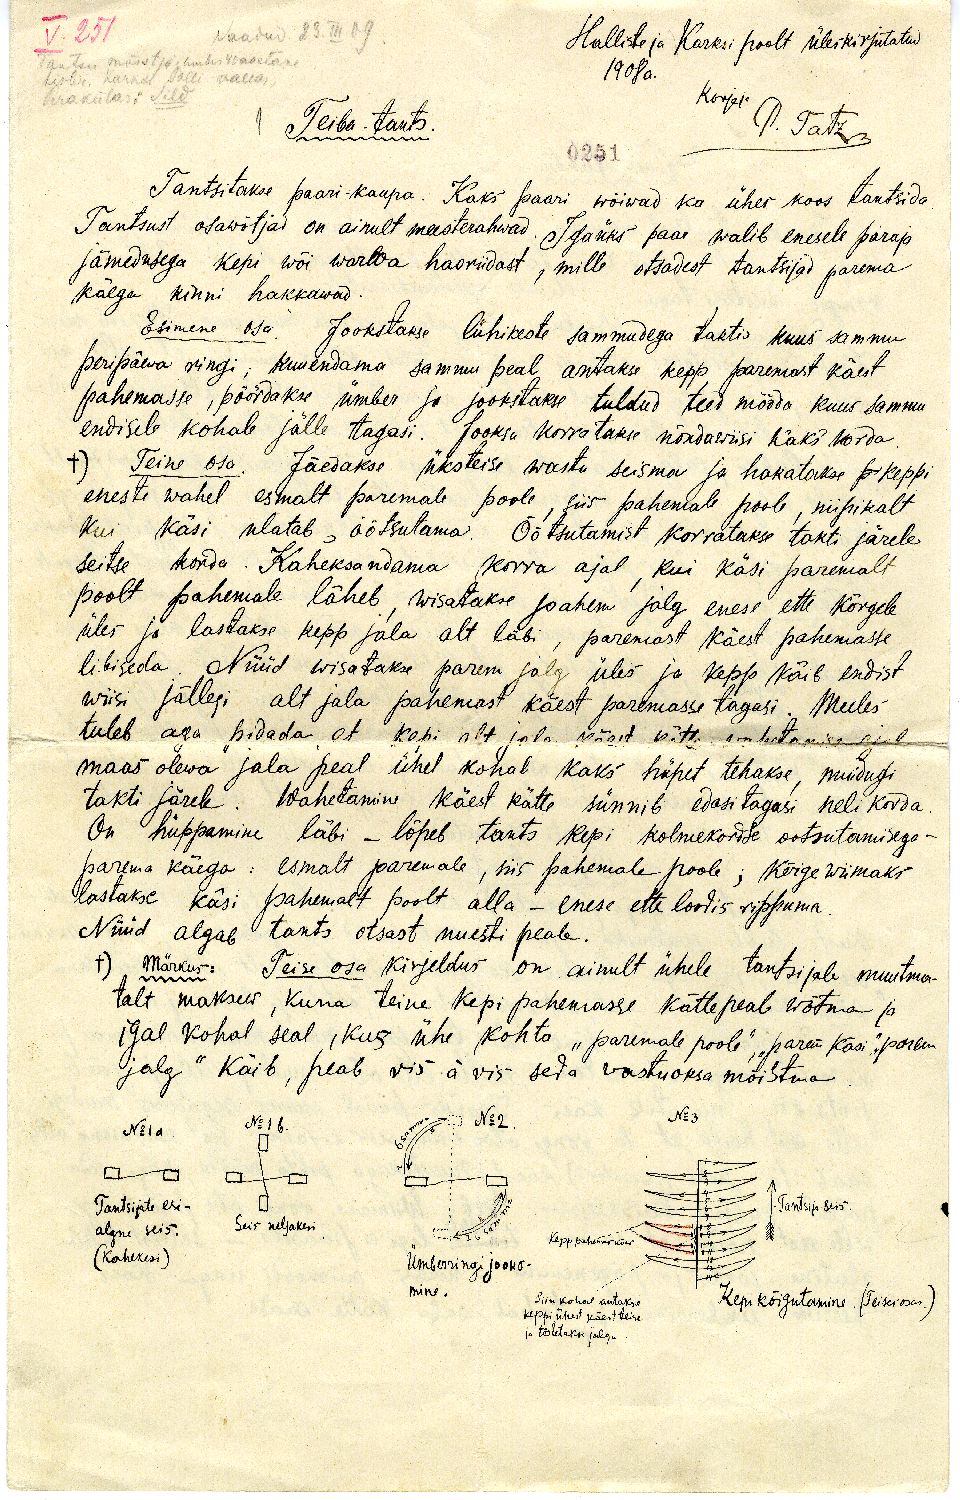 V. 251
saadud 23. III 09.
Halliste ja Karksi poolt üleskirjutatud
1908 a.
Korjas
P. Tatz
1 Teiba-tants.
0251
Tantsitakse paari-kaupa. Kaks paari wõiwad ka ühes koos tantsida
Tantsust osawõtjad on ainult meesterahwad. Igaüks paar walib enesele paraja
jämedusega kepi wõi warba haoriidast, mille otsadest tantsijad parema
käega kinni hakkawad.
Esimene osa. Jookstakse lühikeste sammudega taktis kuus sammu
peripäewa ringi, kuuendama sammu peal antakse kepp paremast käest
pahemasse, pöördakse ümber ja jookstakse tuldud teed mööda kuus sammu
endisele kohale jälle tagasi. Jooksu korratakse nõndawiisi kaks korda.
†) Teine osa. Jäedakse üksteise wastu seisma ja hakatakse keppi
eneste wahel esmalt paremale poole, siis pahemale poole, niipikalt
kui käsi ulatab, öötsutama. Öötsutamist korratakse takti järele
seitse korda. Kaheksandama korra ajal, kui käsi paremalt
poolt pahemale läheb, wisatakse pahem jalg enese ette kõrgele
üles ja lastakse kepp jala alt läbi, paremast käest pahemasse
libiseda. Nüüd wisatakse parem jalg üles ja kepp käib endist
wiisi jällegi alt jala pahemast käest paremasse tagasi. Meeles
tuleb aga pidada, et kepi alt jala käest kätte wahetamise ajal
maas olewa jala peal ühel kohal kaks hüpet tehakse, muidugi
takti järele. Wahetamine käest kätte sünnib edasi tagasi neli korda.
On hüppamine läbi – lõpeb tants kepi kolmekordse öötsutamisega –
parema käega: esmalt paremale, siis pahemale poole; kõige wiimaks
lastakse käsi pahemalt poolt alla – enese ette loodis rippuma.
Nüüd algab tants otsast uuesti peale.
†) Märkus: Teise osa kirjeldus on ainult ühele tantsijale muutma-
talt maksew, kuna teine kepi pahemasse kätte peab wõtma ja
igal kohal seal, kus ühe kohta „paremale poole", „parem käsi", „parem
jalg" käib, peab vis à vis seda vastuoksa mõistma.
№1a.
№1b.
№2.
№3
6 sammu
6 sammu
Tantsijate esi-
algne seis.
(Kahekesi)
Seis neljakesi
Ümberringi jooks-
mine.
Kepp pahemas käes
Tantsija seis.
Siin kohal antakse
keppi ühest käest teise
ja tõstetakse jalga.
Kepi kõigutamine. (Teises osas.)